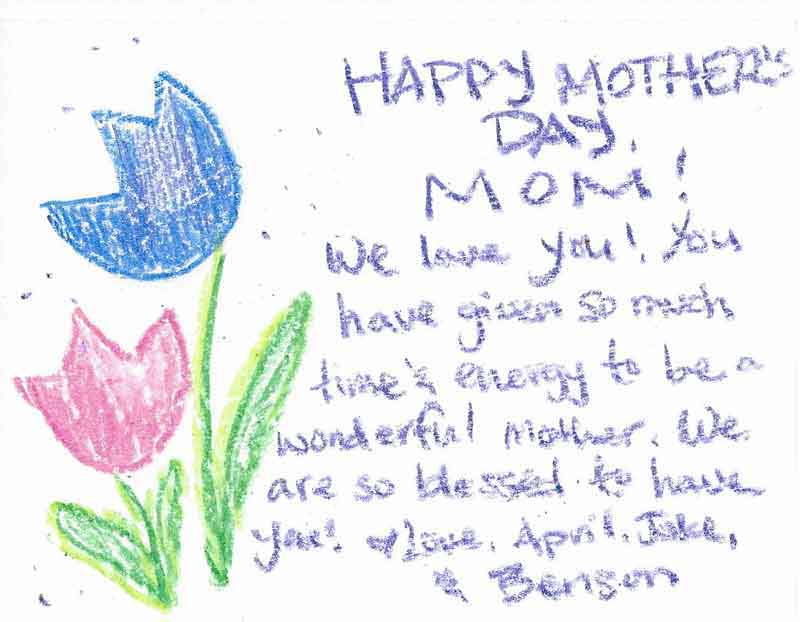 HAPPY MOTHER'S
DAY,
MOM!
We love you! You
have given so much
time & energy to be a
wonderful mother. We
are so blessed to have
you! ♥ Love, April, Jake,
& Benson